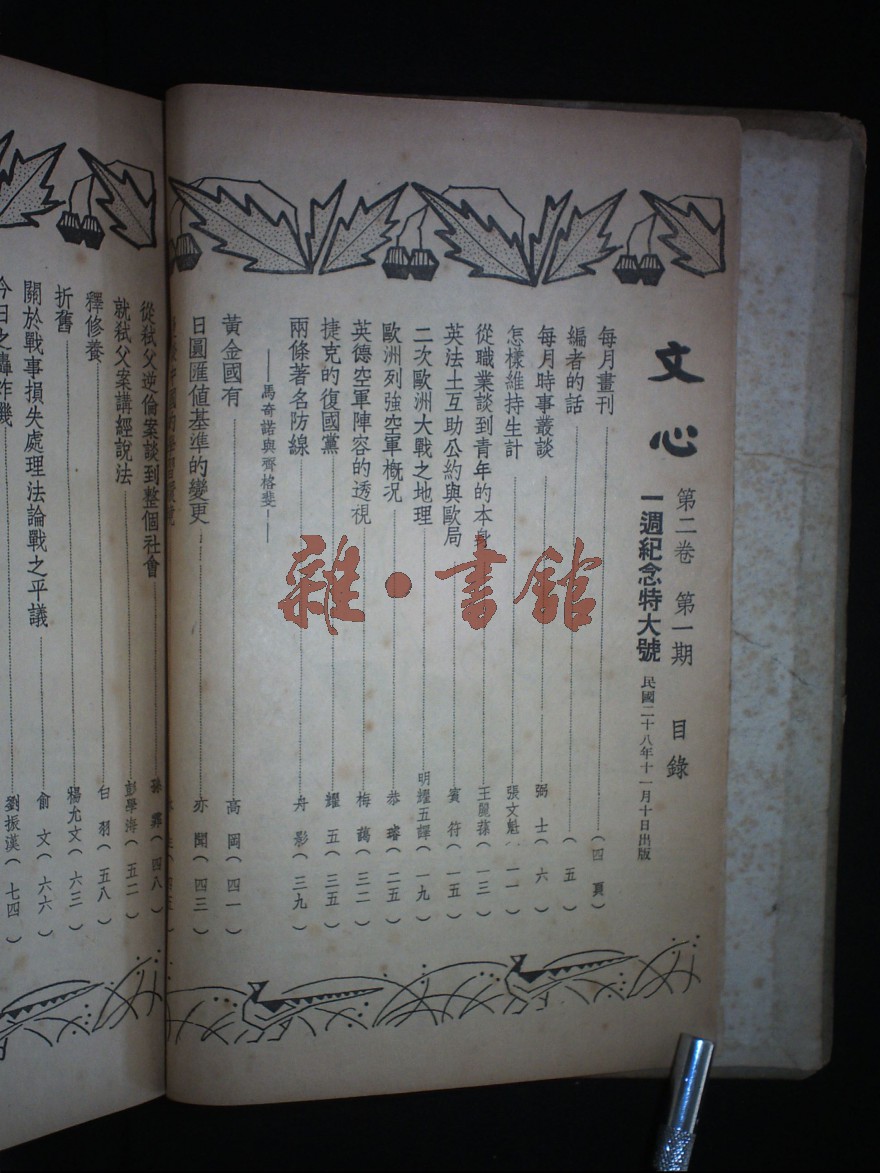 文心 第二卷 第一期 目錄
一週紀念特大號 民國二十八年十一月十日出版
每月畫刊 (四頁)
編者的話 (五)
每月時事叢談 弼士(六)
怎樣維持生計 張文魁(一一)
從職業談到青年的本身 王麗葆(一三)
英法土互助公約與歐局 賓符(一五)
二次歐洲大戰之地理 明耀五譯(一九)
歐洲列強空軍概況 恭璿(二五)
英德空軍陣容的透視 梅藹(三二)
捷克的復國黨 耀五(三五)
兩條著名防線 舟影(三九)
——馬奇諾與齊格斐——
黃金國有 高岡(四一)
日圓匯值基準的變更 亦聞(四三)
從弒父逆倫案談到整個社會 孫霽(四八)
就弒父案講經說法 彭學海(五二)
釋修養 白羽(五八)
折舊 楊允文(六三)
關於戰事損失處理法論戰之平議 俞文(六六)
今日之轟炸機 劉振漢(七四)
雜·書館